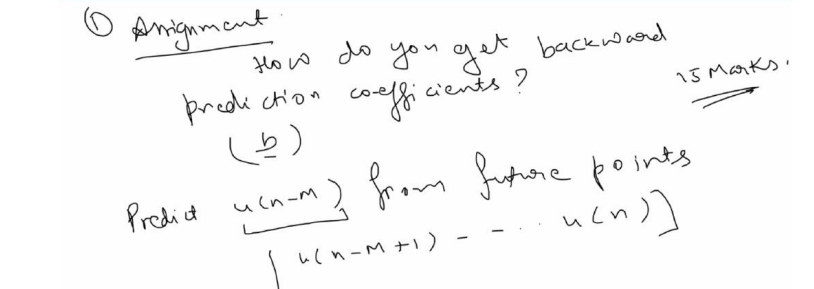 ① Assignment.
How do you get backward
prediction co-efficients?
15 Marks.
(b)
Predict u(n-M) from future points
[u(n-M+1) - - ... u(n)]